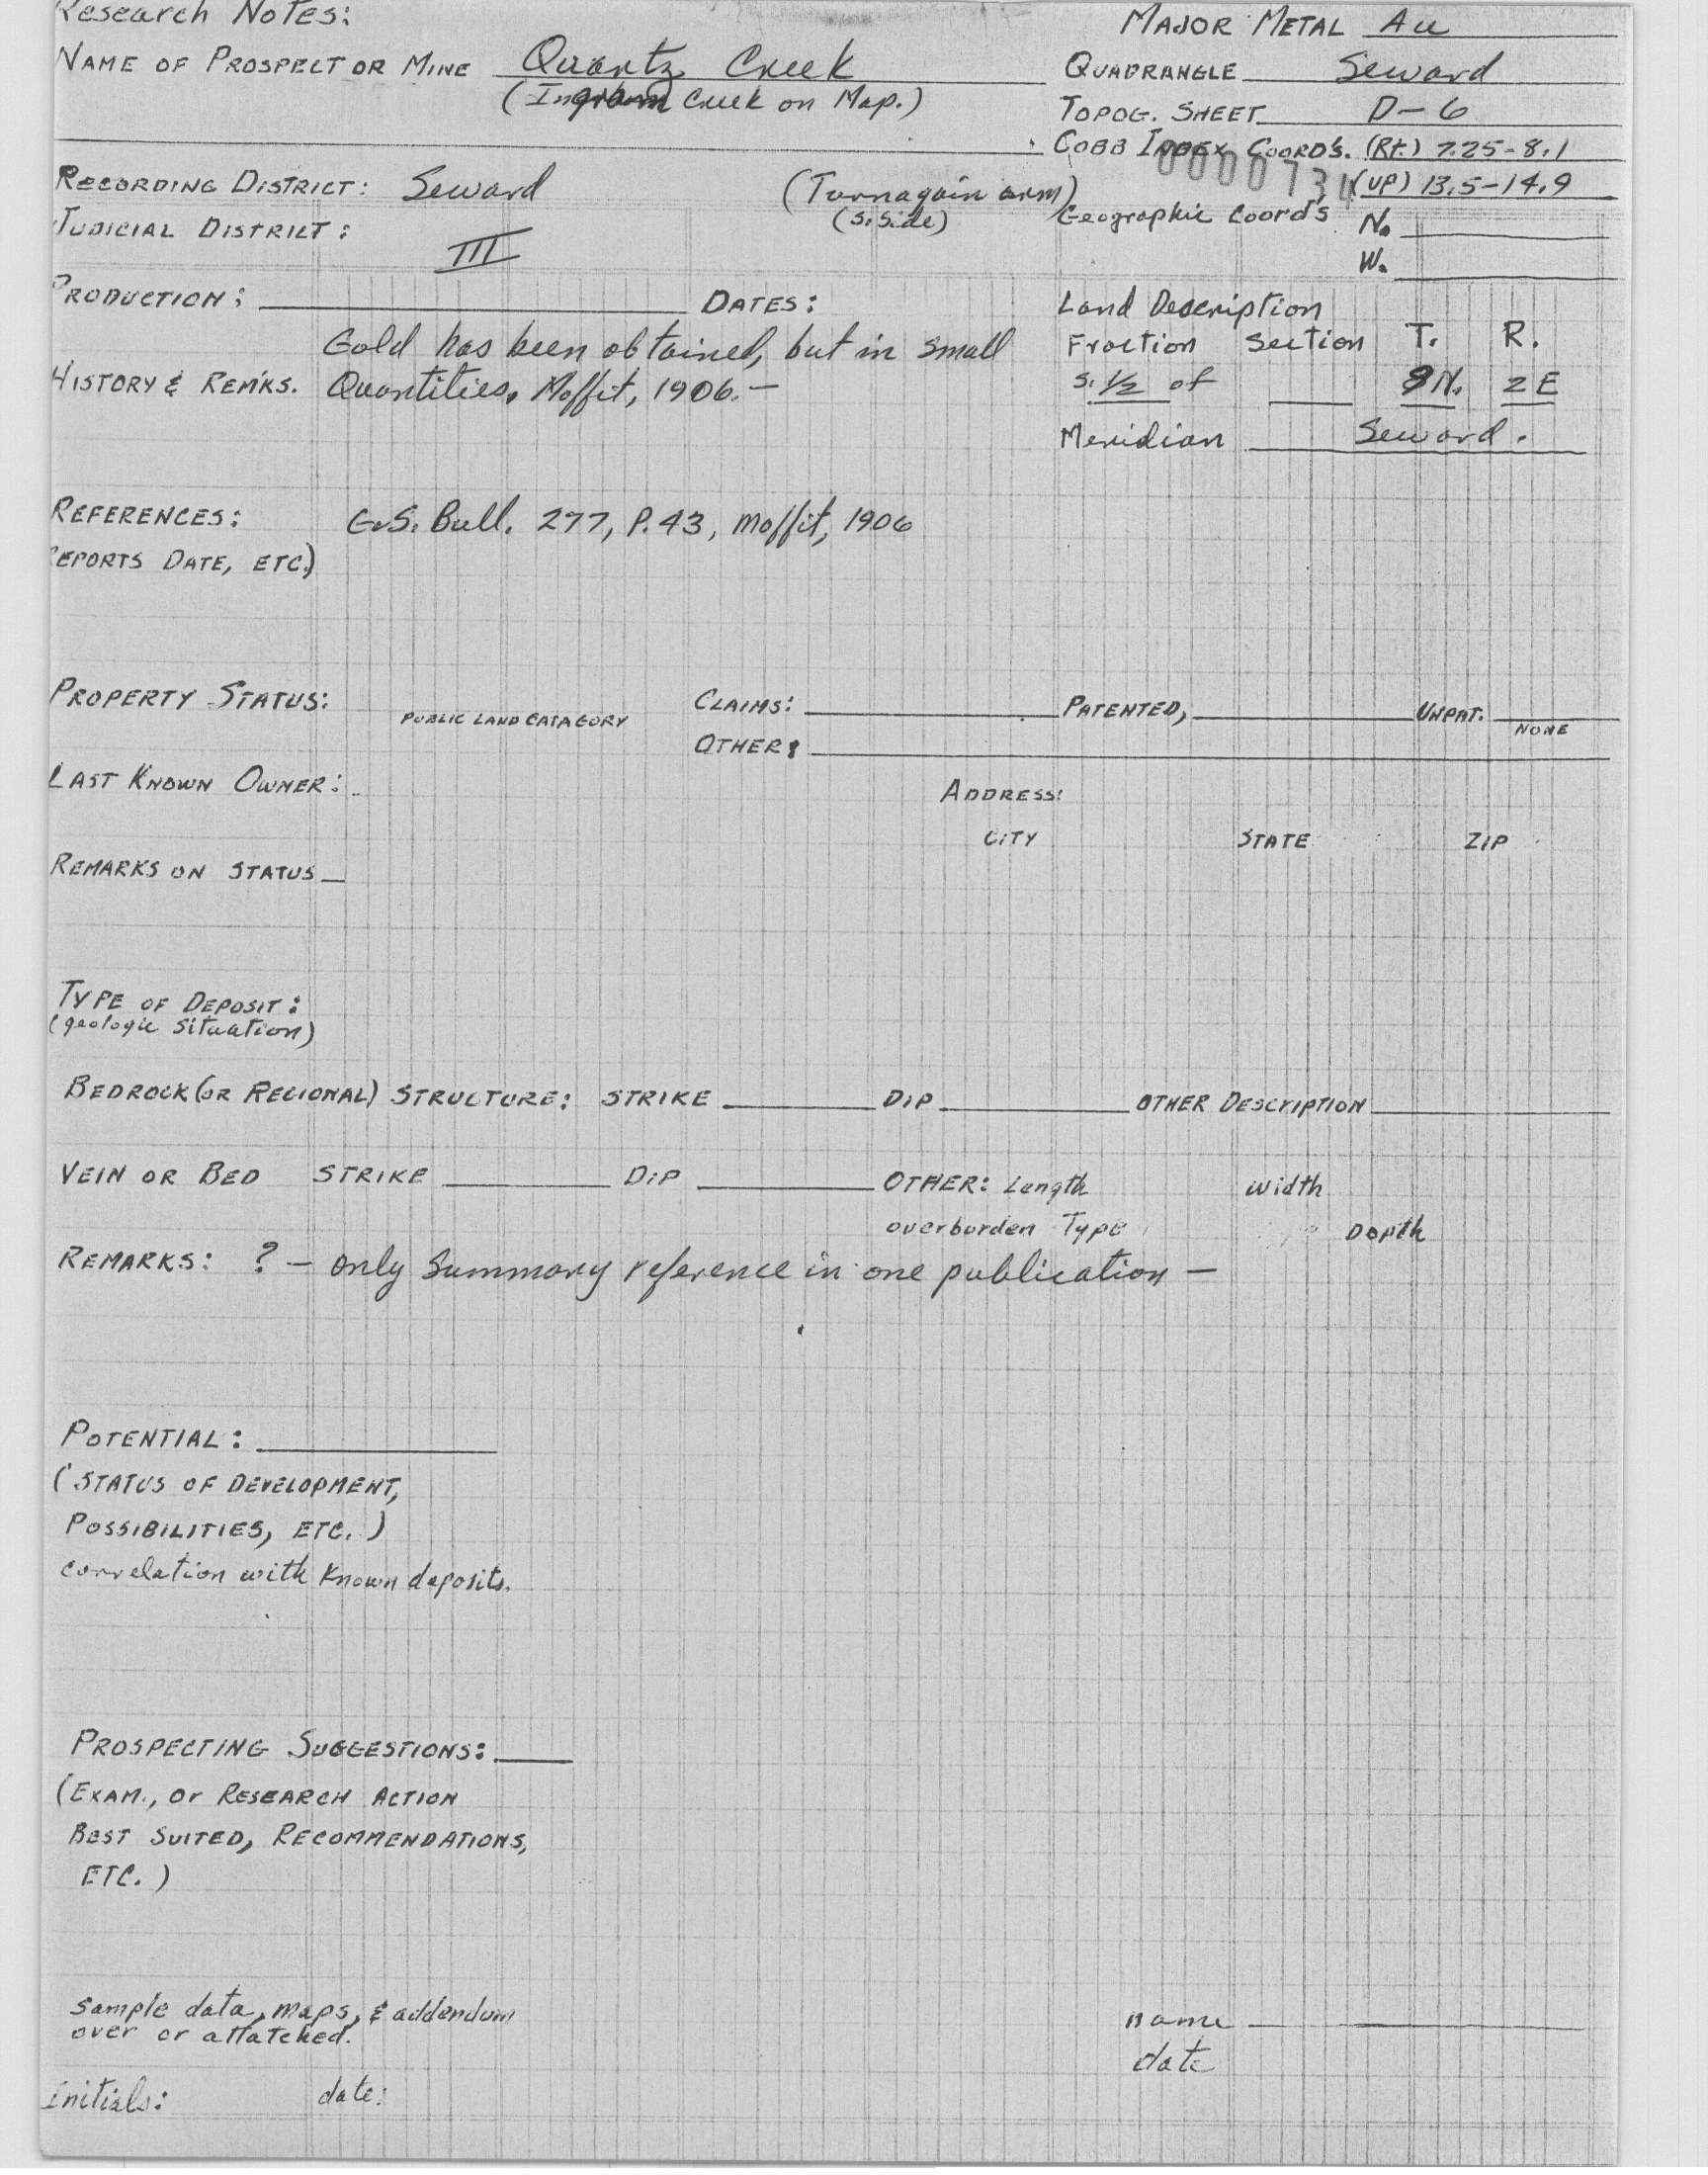 Research Notes:
MAJOR METAL Au
NAME OF PROSPECT OR MINE Quartz Creek
QUADRANGLE Seward
(Ingram Creek on Map.)
TOPOG. SHEET D-6
COBB INDEX COORD'S. (Rt.) 7.25-8.1
0000734
(UP) 13.5-14.9
RECORDING DISTRICT: Seward (Turnagain arm)
(S. Side)
Geographic Coord's N.
W.
JUDICIAL DISTRICT: III
PRODUCTION: DATES:
Land Description
Gold has been obtained, but in small
Fraction Section T. R.
HISTORY & REM'KS. Quantities. Moffit, 1906. —
S. 1/2 of 9N. 2E
Meridian Seward.
REFERENCES: G.S. Bull. 277, P. 43, Moffit, 1906
REPORTS DATE, ETC.)
PROPERTY STATUS: PUBLIC LAND CATAGORY CLAIMS: PATENTED, UNPAT.
NONE
OTHER:
LAST KNOWN OWNER:
ADDRESS:
CITY STATE ZIP
REMARKS ON STATUS
TYPE OF DEPOSIT:
(geologic situation)
BEDROCK (OR REGIONAL) STRUCTURE: STRIKE DIP OTHER DESCRIPTION
VEIN OR BED STRIKE DIP OTHER: Length Width
overburden Type Depth
REMARKS: ? — only summary reference in one publication —
POTENTIAL:
(STATUS OF DEVELOPMENT,
POSSIBILITIES, ETC.)
correlation with known deposits.
PROSPECTING SUGGESTIONS:
(EXAM., or RESEARCH ACTION
BEST SUITED, RECOMMENDATIONS,
ETC.)
sample data, maps, & addendum
over or attatched.
name
date
initials: date: